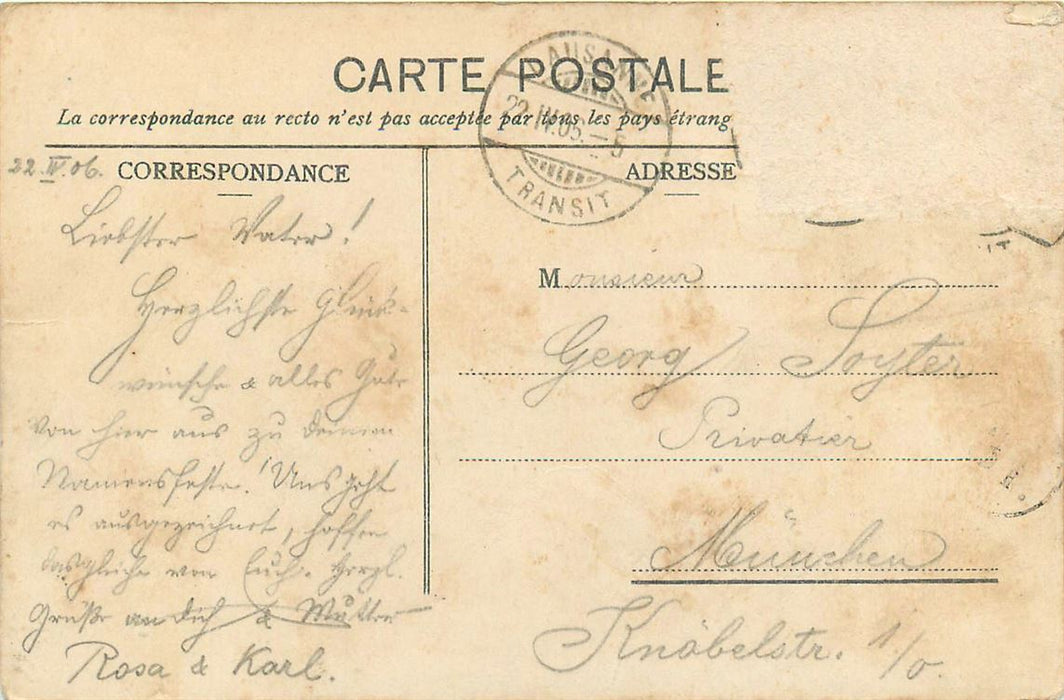 CARTE POSTALE
La correspondance au recto n'est pas acceptée par tous les pays étrang
LAUSANNE
22.IV.06.–5
TRANSIT
22.IV.06.
CORRESPONDANCE
Liebster Vater!
Herzlichste Glück-
wünsche & alles Gute
von hier aus zu Deinem
Namensfeste! Uns geht
es ausgezeichnet, hoffen
dasgleiche von Euch. Herzl.
Grüße an Dich & Mutter
Rosa & Karl.
ADRESSE
Monsieur
Georg Soyter
Privatier
München
Knöbelstr. 1/0.